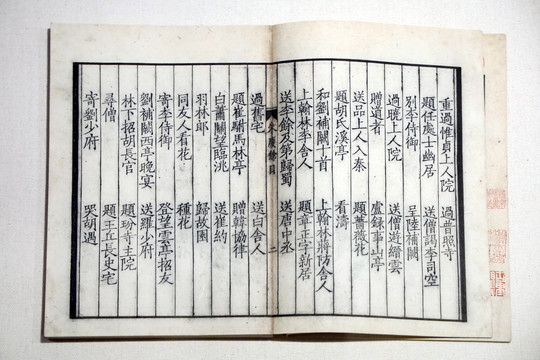 重過惟貞上人院 過普照寺
題任處士幽居 送僧謁李司空
別李侍御 呈陸補闕
過曉上人院 送僧遊縉雲
贈道者 盧録事山亭
送品上人入秦 題薔薇花
題胡氏溪亭 看濤
和劉補闕十首 上翰林蔣防舍人
上翰林李舍人 題章正字新居
送李餘及第歸蜀 送唐中丞
朱慶餘目 二
過舊宅 送白舍人
題崔駙馬林亭 贈韓協律
白蕭關望臨洮 送崔約
羽林郎 歸故園
同友人看花 種花
寄李侍御 登望雲亭招友
劉補闕西亭晚宴 送羅少府
林下招胡長官 題玢寺主院
尋僧 題王丘長史宅
寄劉少府 哭胡遇